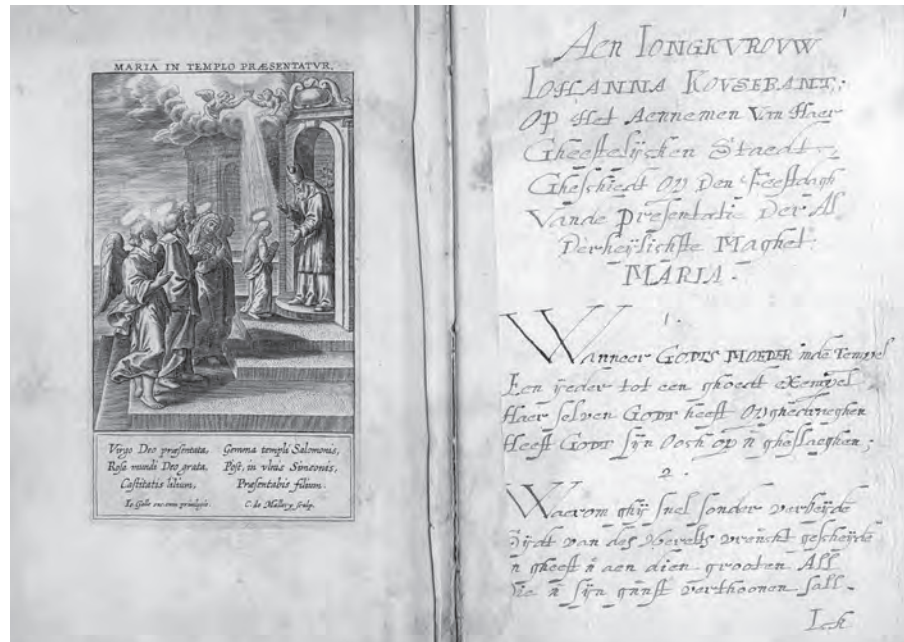 MARIA IN TEMPLO PRÆSENTATVR.
Virgo Deo præsentata,
Rosa mundi Deo grata,
Castitatis lilium,
Gemma templi Salomonis,
Post, in vlnis Simeonis,
Præsentabis filium.
Io. Galle excum
C. de Mallery sculp.
1
Aen IONGKVROVW
IOHANNA KOVSEBANT;
Op Het Aennemen Van Haer
Gheestelijcken Staedt
Gheschiedt Op Den Feestdagh
Vande Presentatie Der Al
Derheijlichste Maghet:
MARIA.
1.
Wanneer GODTS MOEDER inde Tempel
Een ijeder tot een ghoedt exempel
Haer selven GODT heeft Opghedraeghen
Heeft GODT sijn Oogh op ũ gheslaeghen;
2.
Waerom ghij snel sonder verbeijde
Sijdt van des Werelts vrenscht gescheijde
ũ gheeft ũ aen dien grooten All
Die ũ sijn gũnst verthoonen sall.
Ick